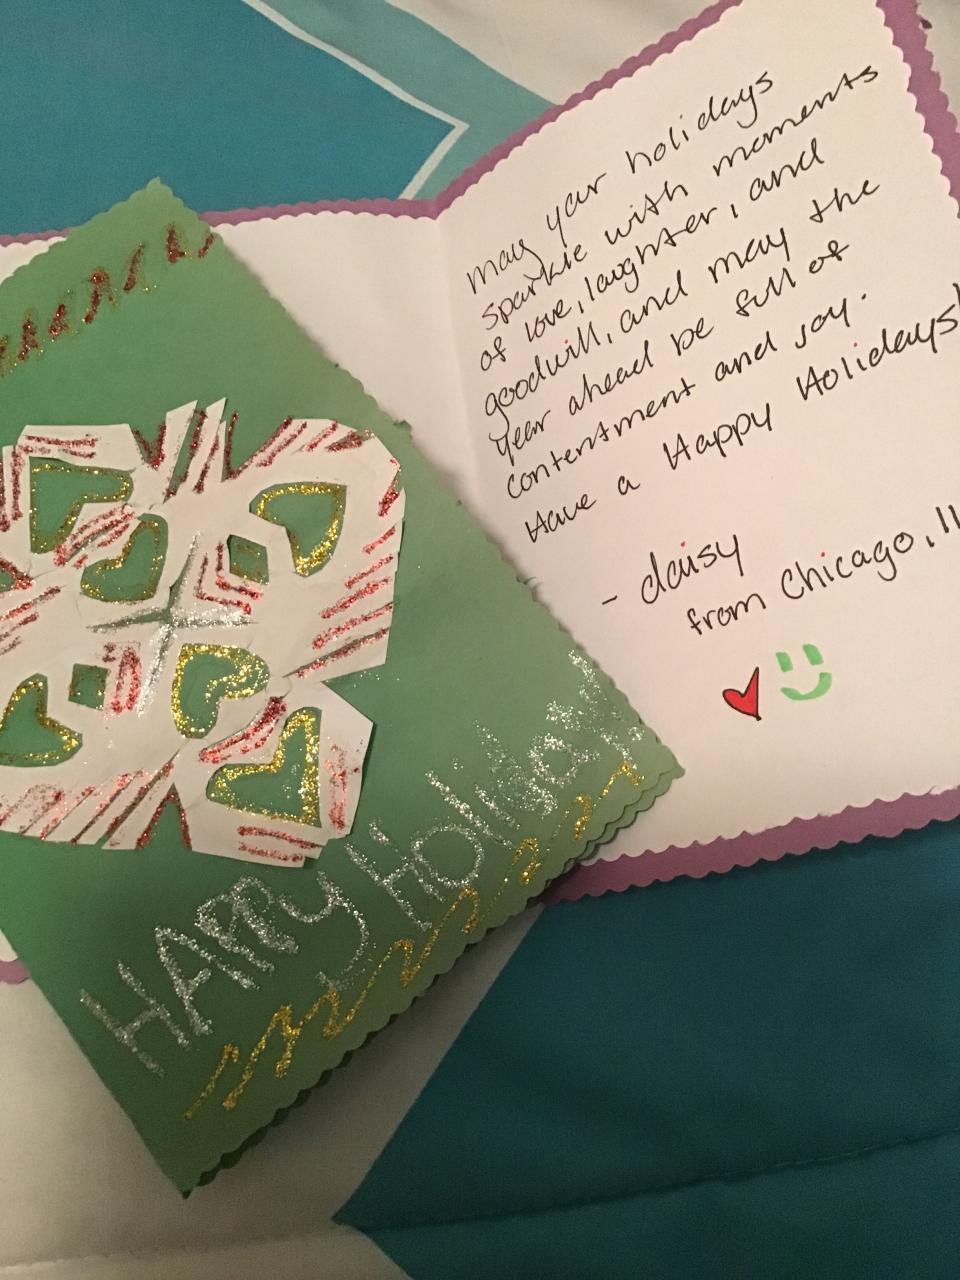 may your holidays
sparkle with moments
of love, laughter, and
goodwill, and may the
year ahead be full of
contentment and joy.
Have a Happy Holidays!
- daisy
from Chicago, Il
HAPPY Holidays